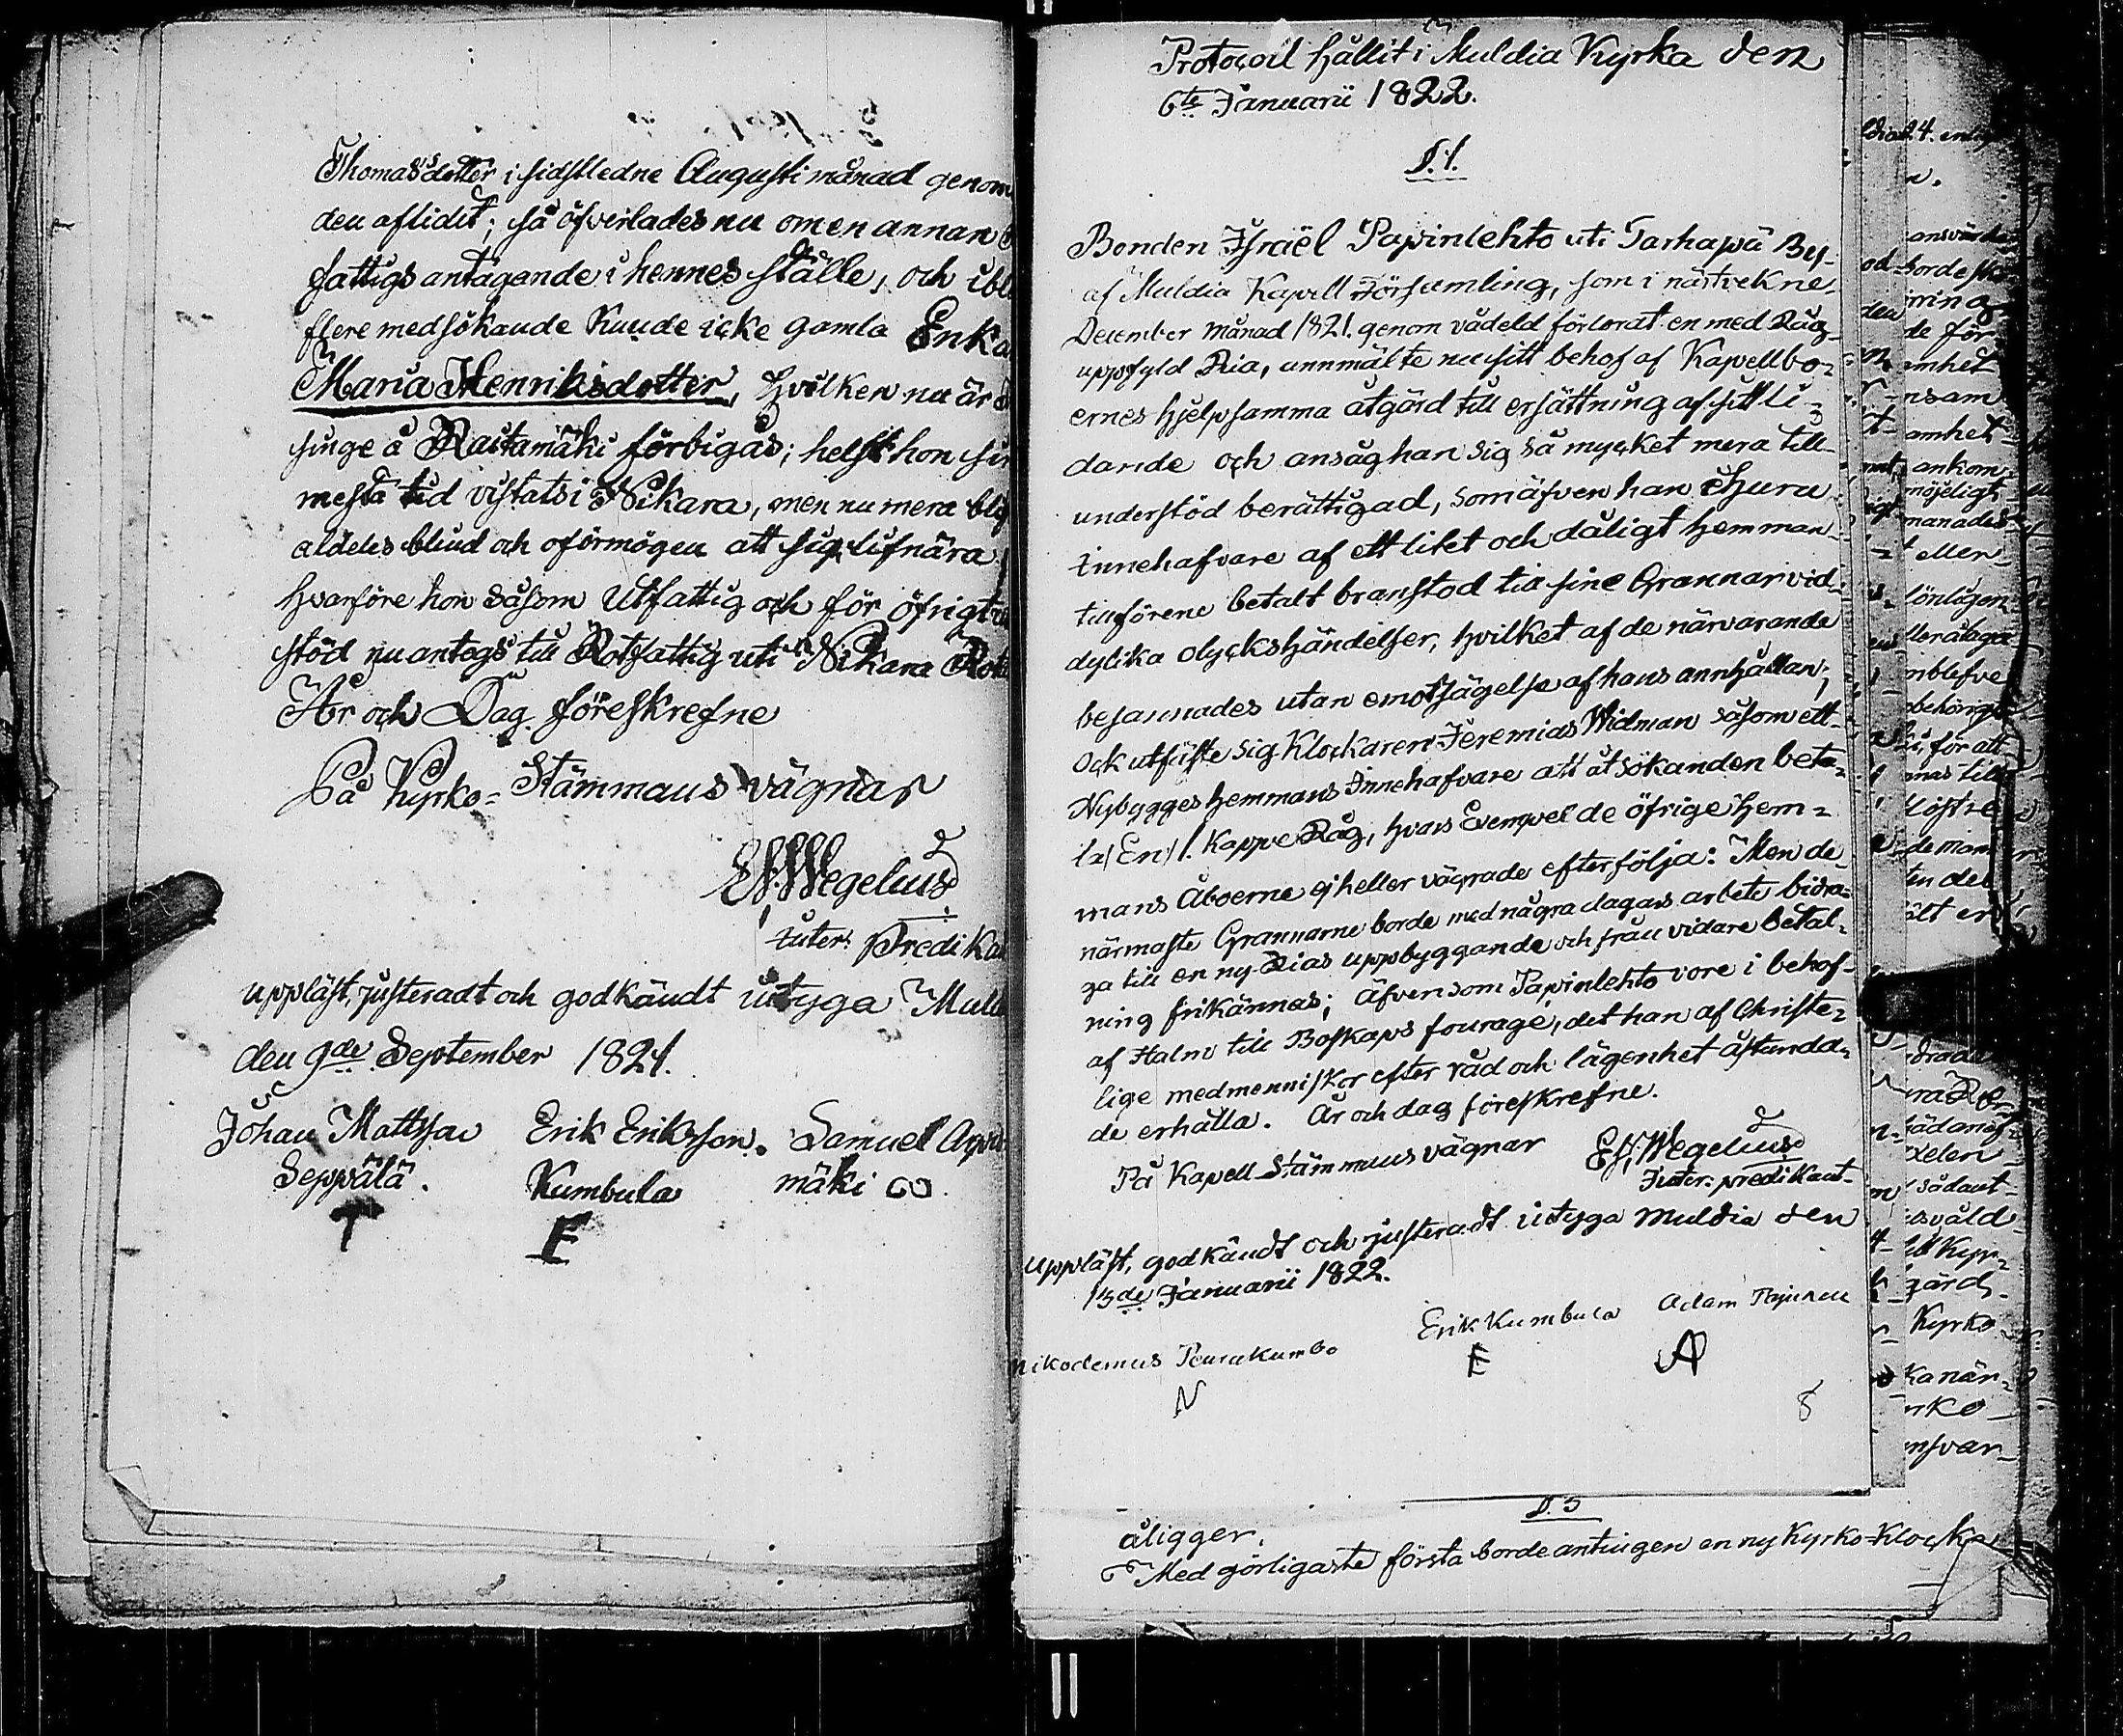 Thomasdotter i sidstledne Augusti månad genom
den aflidit; så öfverlades nu om en annan
fattigs antagande i hennes ställe, och ibl
flere medsökande kunde icke gamla Enka
Maria Henriksdotter, hvilken nu är
singe å Rautamäki förbigås; helst hon sin
mesta tid vistats i Nikara, men nu mera blif
aldeles blind och oförmögen att sig lifnära
hvarföre hon såsom Utfattig och för öfrigt
stöd nu antogs till Rotfattig uti Nikara Rote
År och Dag föreskrefne
På Kyrko-Stämmans vägnar
Wegelius
inter: Predikan
uppläst, justeradt och godkändt intyga Muld
den 9de September 1821.
Johan Mattsson Erik Eriksson. Samuel
Seppälä. Kumbula mäki
T E
Protocoll hållit i Muldia Kyrka den
6te Januarii 1822.
§. 1.
Bonden Israël Papinlehto uti Tarhapä By
af Muldia Kapell Församling, som i nästvekne
December månad 1821. genom vådeld förlorat en med Råg
uppfyld Ria, annmälte nu sitt behof af Kapellbo-
ernes hjelpsamma åtgärd till ersättning af sitt li-
dande och ansåg han sig så mycket mera till
understöd berättigad, som äfven han ehuru
innehafvare af ett litet och dåligt hemman
tillförene betalt branstod till sine Grannar vid
dylika olyckshändelser, hvilket af de närvarande
besannades utan emotsägelse af hans annhållan;
Ock utfäste sig Klockaren Jeremias Widman såsom ett
Nybygges hemmans Innehafvare att åt sökanden beta-
la/ En/ 1. Kappe Råg, hvars Exempel de öfrige Hem-
mans Åboerne ej heller vägrade efterfölja: Men de
närmaste Grannarne borde med några dagars arbete bidra-
ga till en ny Rias uppbyggande och från vidare betal-
ning frikännas; äfvensom Papinlehto vore i behof
af Halm till Boskaps fourage, det han af Christe-
lige medmenniskor efter råd och lägenhet åstunda-
de erhålla. År och dag föreskrefne.
På Kapell Stämmans vägnar Wegelius
Inter. predikant
Uppläst, godkändt och justeradt intyga Muldia den
13de Januarii 1822.
Nikodemus Peurakumbo Erik Kumbula Adam
N E A
8
§. 5
åligger.
Med görligaste första borde antingen en ny Kyrko-Klocka